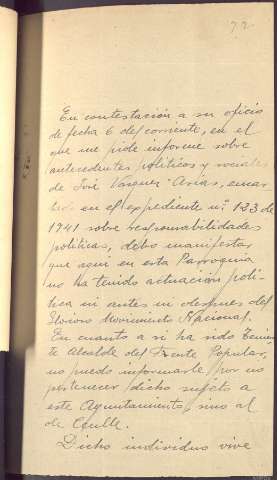 72.
En contestación a su oficio
de fecha 6 del corriente, en el
que me pide informe sobre
antecedentes políticos y sociales
de José Vazquez Arias,
en el expediente nº 133 de
1941 sobre responsabilidades
políticas, debo manifestar
que aqui en esta Parroquia
no ha tenido actuación polí-
tica ni antes ni despues del
Glorioso Movimiento Nacional.
En cuanto a si ha sido Tenien
te Alcalde del Frente Popular,
no puedo informarle, por no
pertenecer dicho sujeto a
este Ayuntamiento, sino al
de
Dicho individuo vive